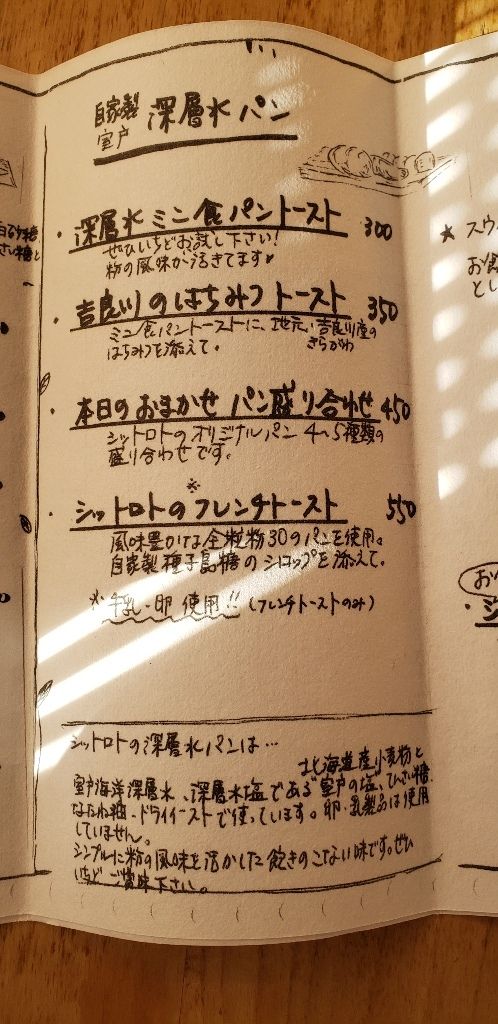 自家製
室戸 深層水パン
・深層水ミニ食パントースト 300
ぜひいちどお試し下さい!
粉の風味が活きてます♪
・吉良川のはちみつトースト 350
ミニ食パントーストに、地元・吉良川産の
きらがわ
はちみつを添えて。
・本日のおまかせ パン盛り合わせ 450
シットロトのオリジナルパン 4~5種類の
盛り合わせです。
・シットロトのフレンチトースト※ 550
風味豊かな全粒粉30のパンを使用。
自家製種子島糖のシロップを添えて。
※牛乳・卵 使用!!(フレンチトーストのみ)
シットロトの深層水パンは…
北海道産小麦粉と
室戸海洋深層水、深層水塩である室戸の塩、てんさい糖、
なたね油・ドライイーストで使っています。卵・乳製品は使用
していません。
シンプルに粉の風味を活かした飽きのこない味です。ぜひ
いちど ご賞味下さい。
★ スウィ
お食
とし